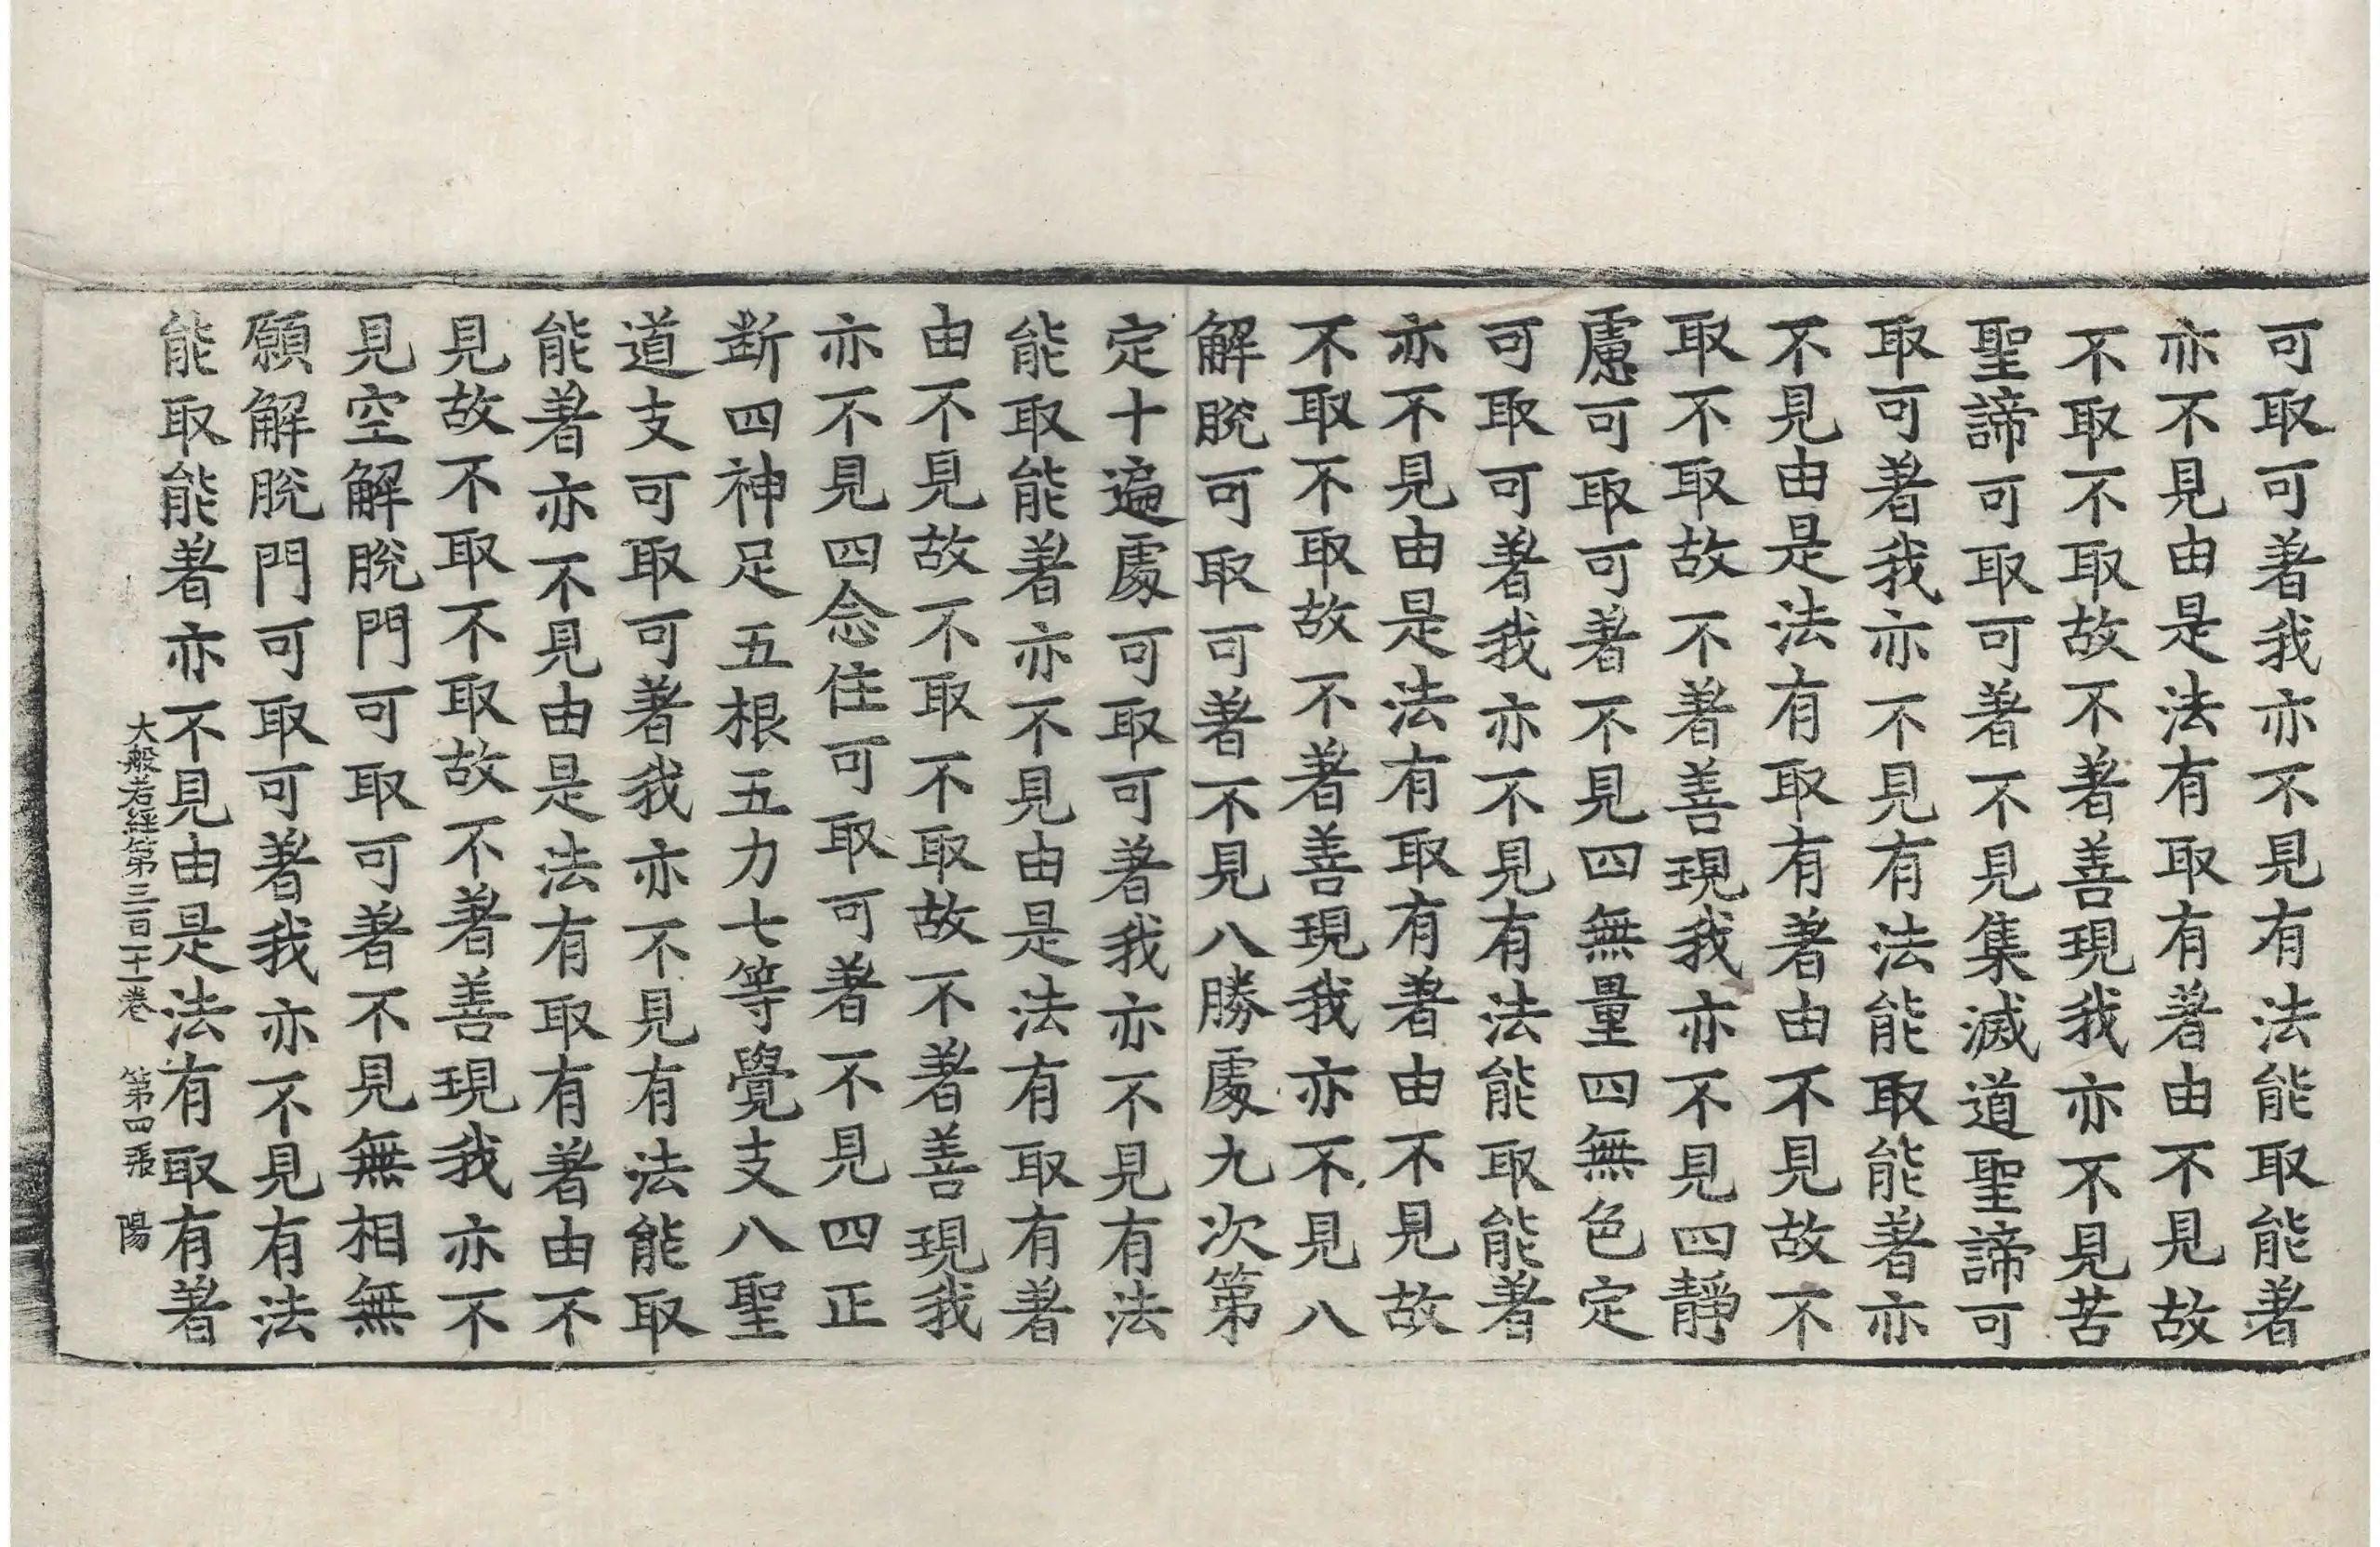 可取可著我亦不見有法能取能著
亦不見由是法有取有著由不見故
不取不取故不著善現我亦不見苦
聖諦可取可著不見集滅道聖諦可
取可著我亦不見有法能取能著亦
不見由是法有取有著由不見故不
取不取故不著善現我亦不見四靜
慮可取可著不見四無量四無色定
可取可著我亦不見有法能取能著
亦不見由是法有取有著由不見故
不取不取故不著善現我亦不見八
解脫可取可著不見八勝處九次第
定十遍處可取可著我亦不見有法
能取能著亦不見由是法有取有著
由不見故不取不取故不著善現我
亦不見四念住可取可著不見四正
断四神足五根五力七等覺支八聖
道支可取可著我亦不見有法能取
能著亦不見由是法有取有著由不
見故不取不取故不著善現我亦不
見空解脫門可取可著不見無相無
願解脫門可取可著我亦不見有法
能取能著亦不見由是法有取有著
大般若經第三百二十一卷 第四張 陽